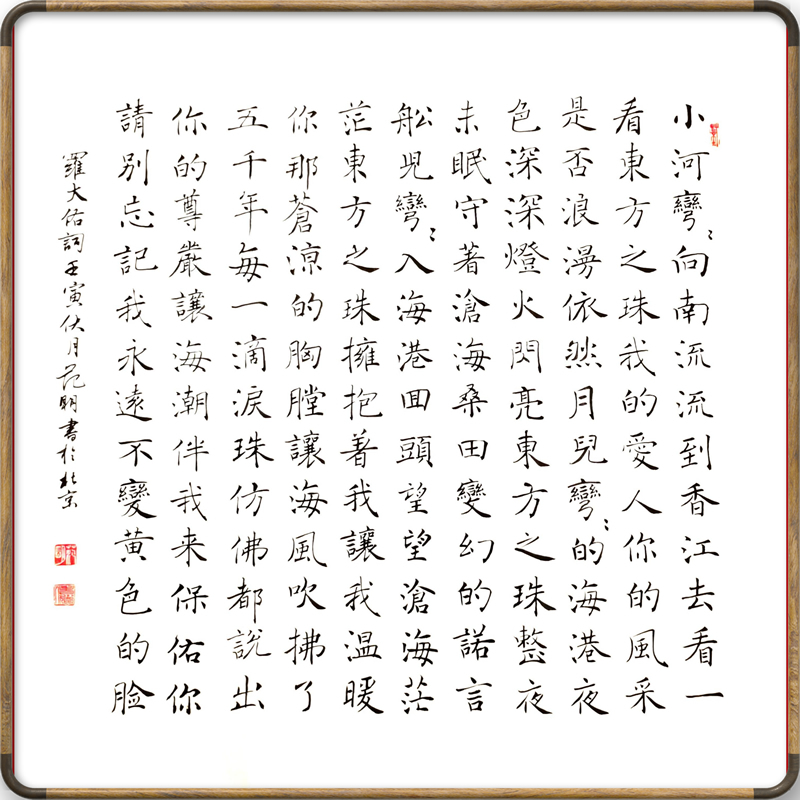 小河彎〻向南流流到香江去看一
看東方之珠我的愛人你的風采
是否浪漫依然月兒彎〻的海港夜
色深深燈火閃亮東方之珠整夜
未眠守著滄海桑田變幻的諾言
舩兒彎〻入海港回頭望望滄海茫
茫東方之珠擁抱著我讓我温暖
你那蒼涼的胸膛讓海風吹拂了
五千年每一滴淚珠仿佛都說出
你的尊嚴讓海潮伴我来保佑你
請别忘記我永遠不變黄色的脸
羅大佑詞壬寅伏月范明書於北京